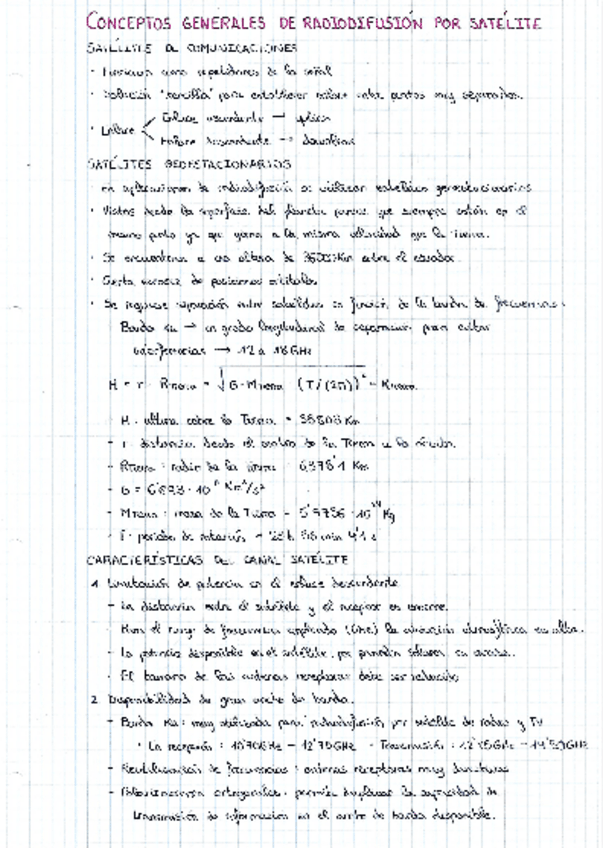 CONCEPTOS GENERALES DE RADIODIFUSIÓN POR SATÉLITE
SATÉLITES DE COMUNICACIONES
· Funcionan como repetidores de la señal
· Solución "sencilla" para establecer enlace entre puntos muy separados.
· Enlace
Enlace ascendente → uplink
Enlace descendente → downlink
SATÉLITES GEOESTACIONARIOS
· En aplicaciones de radiodifusión se utilizan satélites geoestacionarios
· Vistos desde la superficie del planeta parece que siempre están en el
mismo punto ya que giran a la misma velocidad que la Tierra.
· Se encuentran a una altura de Km sobre el ecuador.
· Cierta escasez de posiciones orbitales
· Se requiere separación entre satélites en función de la banda de frecuencias.
Banda Ku → un grado longitudinal de separación para evitar
interferencias → 12 a 18 GHz
H = r - RTierra = √ G · MTierra (T/(2π))² -
- H: altura sobre la Tierra = Km
- r: distancia desde el centro de la Tierra a
- RTierra: radio de la tierra = 6378'1 Km
- G =
- MTierra: masa de la Tierra = Kg
- T: periodo de rotación = 23h 56 min 4'1 s
CARACTERÍSTICAS DEL CANAL SATÉLITE
1 Limitación de potencia en el enlace descendente
- La distancia entre el satélite y el receptor es enorme.
el rango de frecuencia empleado (GHz) la atenuación atmosférica es alta.
- La potencia disponible en el satélite, por paneles solares, es escasa.
- El tamaño de las antenas receptoras debe ser reducido
2 Disponibilidad de gran ancho de banda.
- Banda Ku: muy utilizada para radiodifusión por satélite de radio y TV
· La recepción: 10'70GHz - 12'75GHz - Transmisión:
- Reutilización de frecuencias: antenas receptoras muy directivas
- Polarizaciones ortogonales: permite duplicar la capacidad de
transmisión de información en el ancho de banda disponible.